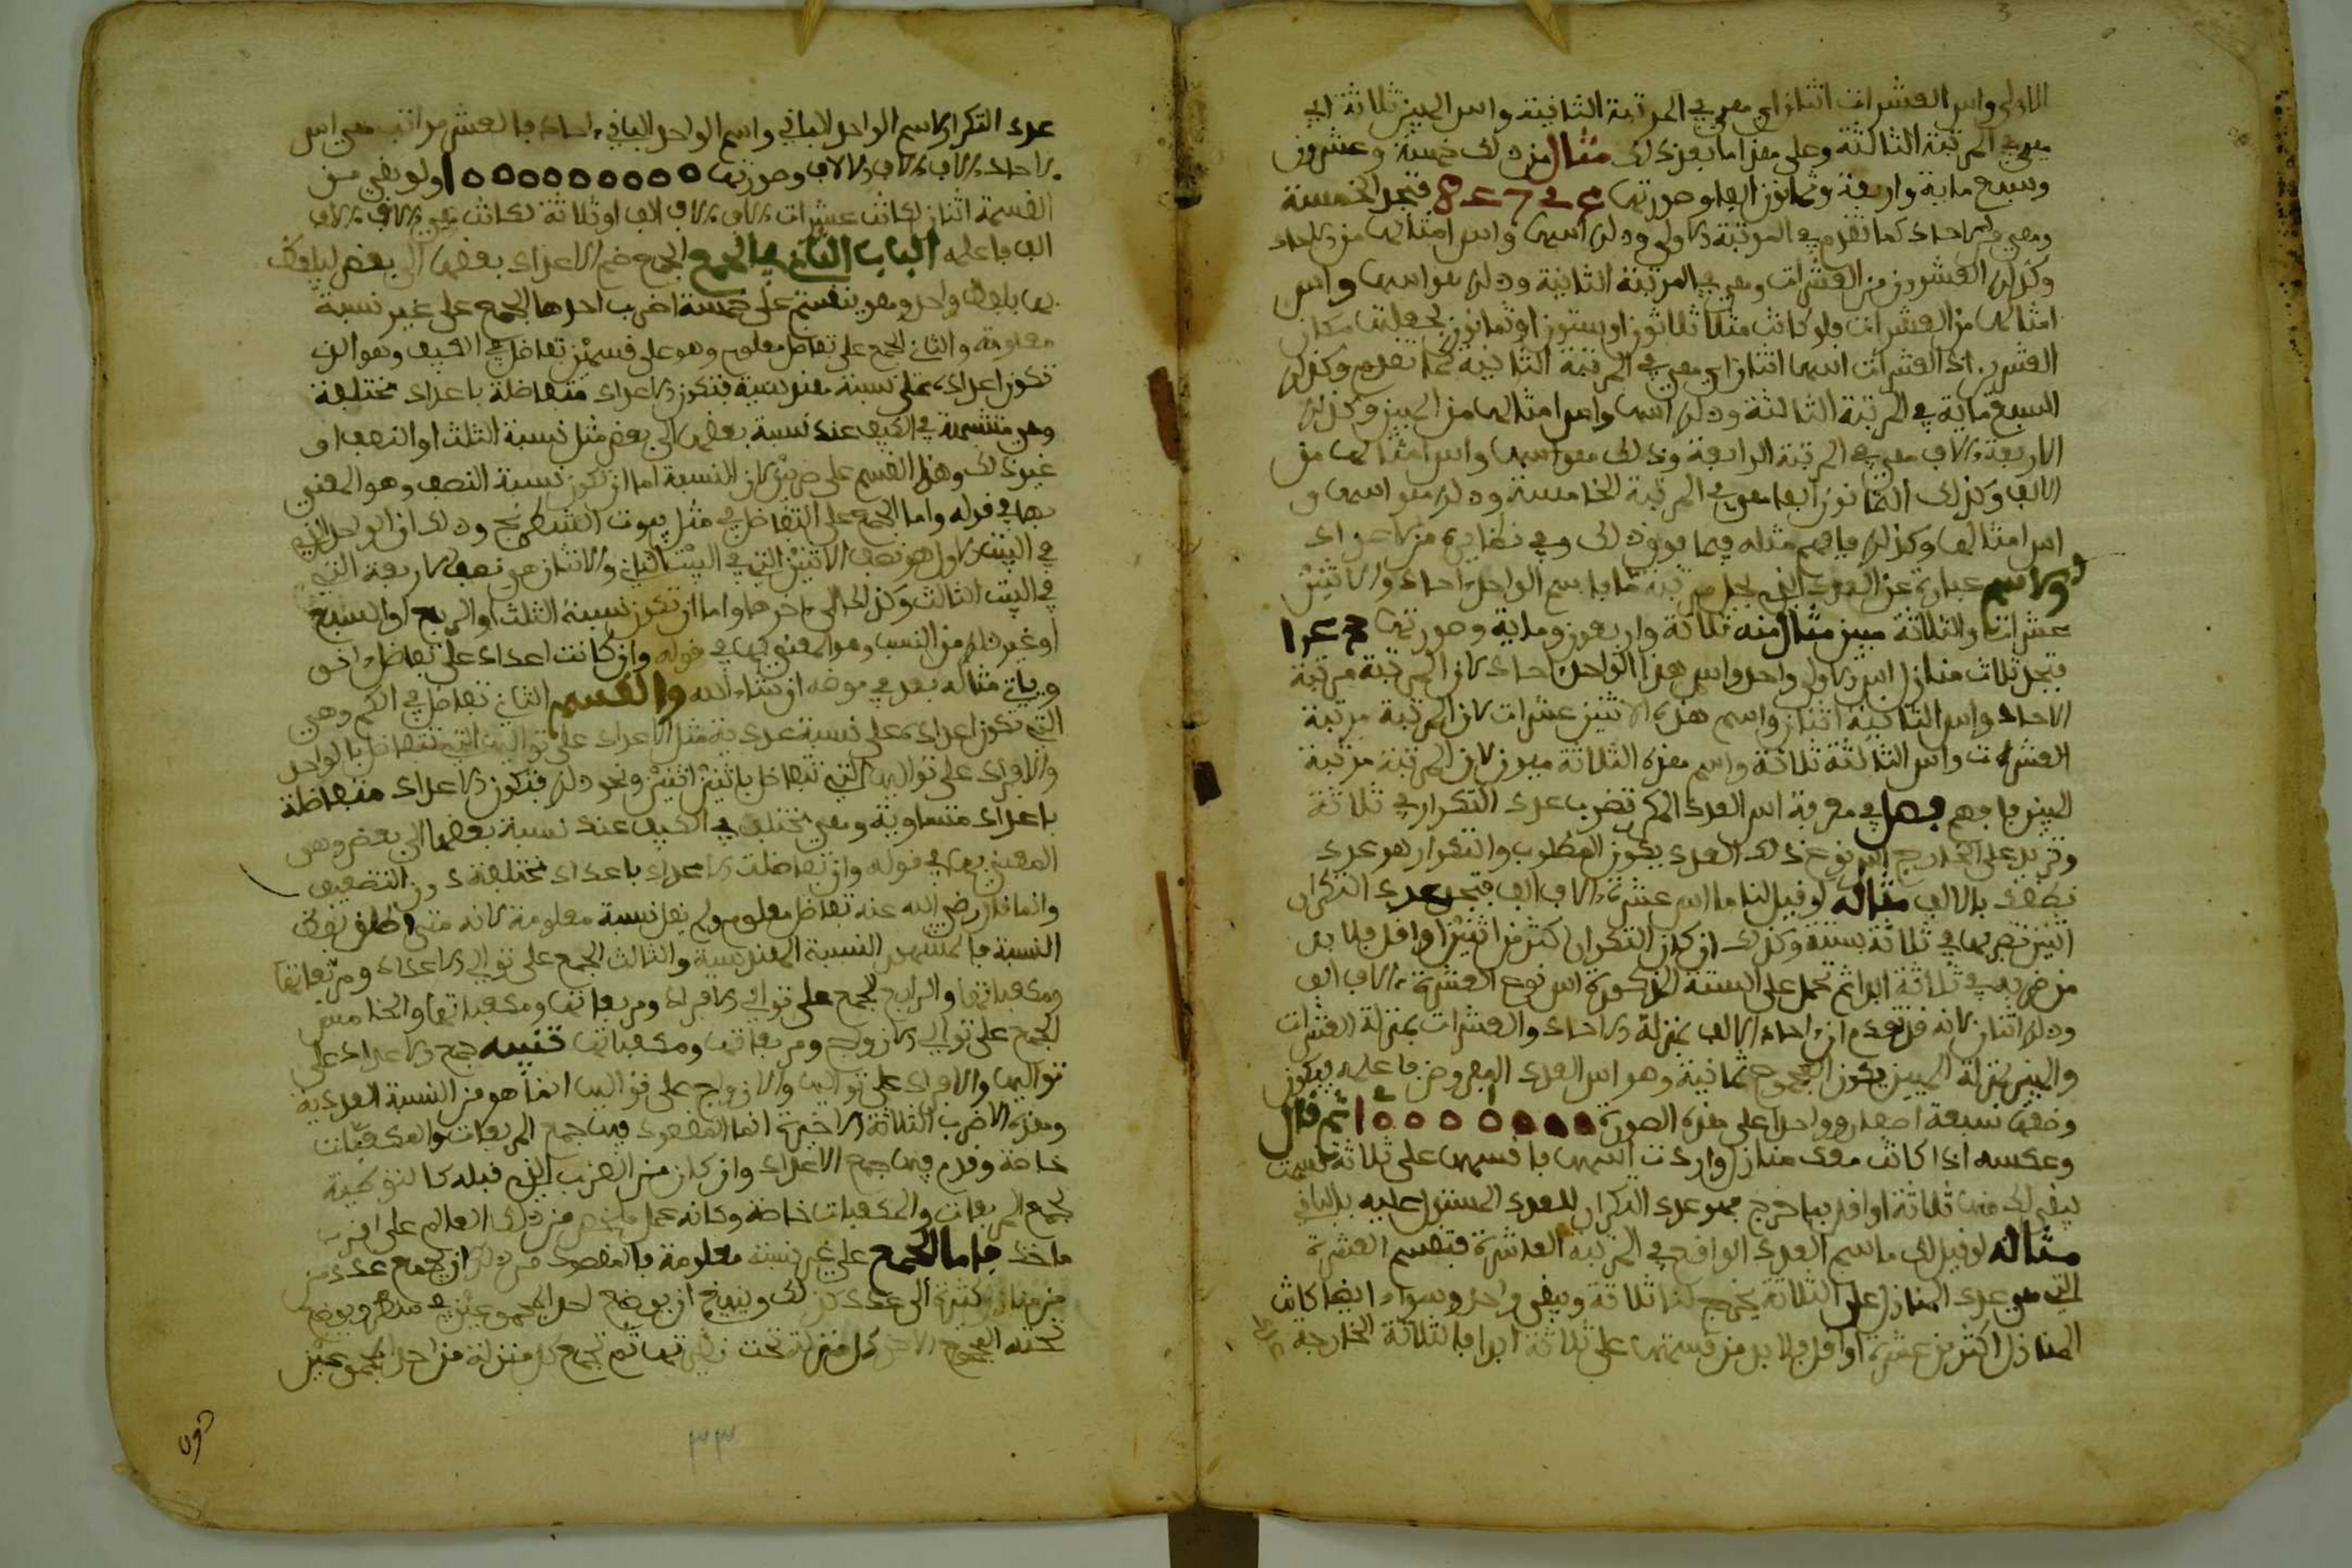 الاولى واس العشرات اثنان اي هي في المرتبة الثانية واس الميين ثلاثة اي
هي في المرتبة الثالثة وعلى هذا ما بعد ذلك مثال من ذلك خمسة وعشرون
وسبع ماية واربعة وثمانون الفا وصورتها فتجد الخمسة
وهي من الاحاد كما تقدم في المرتبة الاولى وذلك اسها واس امثالها من الاحاد
وكذلك العشرون من العشرات وهي في المرتبة الثانية وذلك هو اسها واس
امثالها من العشرات فلو كانت مثلا ثلاثون او ستون او ثمانون لجعلت مكان
العشرين اذ العشرات اسها اثنان اي هي في المرتبة الثانية كما تقدم وكذلك
السبع ماية في المرتبة الثالثة وذلك اسها واس امثالها من الميين وكذلك
الاربعة ءالاف هي في المرتبة الرابعة وذلك هو اسها واس امثالها من
الالف وكذلك الثمانون الفا هي في المرتبة الخامسة وذلك هو اسها و
اس امثالها وكذلك فافهم مثله فيما فوق ذلك وفي نظايره من الاعداد
والاسم عبارة عن العدد الذي يحل مرتبة ما فاسم الواحد ءاحاد والاثنين
عشرات والثلاثة ميين مثال منه ثلاثة واربعون وماية وصورتها
فتجد ثلاث منازل اس الاولى واحد واسم هذا الواحد ءاحاد لان المرتبة مرتبة
الاحاد واس الثانية اثنان واسم هذه الاثنين عشرات لان المرتبة مرتبة
العشرات واس الثالثة ثلاثة واسم هذه الثلاثة ميون لان المرتبة مرتبة
الميين فافهم فصل في معرفة اس العدد المكرر تضرب عدد التكرار في ثلاثة
وتزيد على الخارج اس نوع ذلك العدد يكون المطلوب والتكرار هو عدد
نطقك بالالف مثاله لو قيل لنا ما اس عشرة ءالاف الف فتجد عدد التكرار
اثنين تضربها في ثلاثة بستة وكذلك ان كان التكرار اكثر من اثنين او اقل فلا بد
من ضربه في ثلاثة ابدا ثم تحمل على الستة المذكورة اس نوع العشرة ءالاف الف
وذلك اثنان لانه قد تقدم ان ءاحاد الالف بمنزلة الاحاد والعشرات بمنزلة العشرات
والميين بمنزلة الميين يكون المجموع ثمانية وهو اس العدد المفروض فاعلمه يكون
وضعها سبعة اصفار وواحدا على هذه الصورة ٥٥٥٥٥٥٥١ ثم قال
وعكسه اذا كانت معك منازل واردت اسمها فاقسمها على ثلاثة قسمة
يبقى لك منها ثلاثة او اقل فما خرج فهو عدد التكرار للعدد المسئول عليه بالباقي
مثاله لو قيل لك ما اسم العدد الواقع في المرتبة العاشرة فتقسم العشرة
التي هي عدد المنازل على الثلاثة يخرج لنا ثلاثة ويبقى واحد وسواء ايضا كانت
المنازل اكثر من عشرة او اقل فلا بد من قسمتها على ثلاثة ابدا فالثلاثة الخارجة
عدد التكرار لاسم الواحد الباقي واسم الواحد الباقي ءاحاد فالعشر مراتب هي اس
ءاحاد ءالاف ءالاف الالاف وصورتها ٥٥٥٥٥٥٥٥٥١ ولو بقي من
القسمة اثنان لكانت عشرات ءالاف ءالاف الاف او ثلاثة لكانت ميي ءالاف ءالاف
الف فاعلمه الباب الثاني في الجمع الجمع ضم الاعداد بعضها الى بعض ليلفظ
بها بلفظ واحد وهو ينقسم على خمسة اضرب احدها الجمع على غير نسبة
معلومة والثاني الجمع على تفاضل معلوم وهو على قسمين تفاضل في الكيف وهو الذي
تكون اعداده على نسبة هندسية فتكون الاعداد متفاضلة باعداد مختلفة
وهي متشبهة في الكيف عند نسبة بعضها الى بعض مثل نسبة الثلث او النصف او
غير ذلك وهذا القسم على ضربين لان النسبة اما ان تكون نسبة النصف وهو المعني
بها في قوله واما الجمع على التفاضل في مثل بيوت الشطرنج وذلك ان الواحد الذي
في البيت الاول هو نصف الاثنين التي في البيت الثاني والاثنان هي نصف الاربعة التي
في البيت الثالث وكذلك الى ءاخرها واما ان تكون نسبة الثلث او الربع او السبع
او غير ذلك من النسب وهو المعني بها في قوله وان كانت اعداد على تفاضل ءاخر
وياتي مثاله بعد في موضعه ان شاء الله والقسم الثاني تفاضل في الكم وهي
التي تكون اعداده على نسبة عددية مثل الاعداد على تواليها التي تتفاضل بالواحد
والافراد على تواليها التي تتفاضل باثنين اثنين ونحو ذلك فتكون الاعداد متفاضلة
باعداد متساوية وهي تختلف في الكيف عند نسبة بعضها الى بعض وهي
المعني بها في قوله وان تفاضلت الاعداد باعداد مختلفة دون التضعيف
وانما قال رضي الله عنه تفاضل معلوم ولم يقل نسبة معلومة لانه متى اطلق لفظ
النسبة فالمشهور النسبة الهندسية والثالث الجمع على توالي الاعداد ومربعاتها
ومكعباتها والرابع الجمع على توالي الافراد ومربعاتها ومكعباتها والخامس
الجمع على توالي الازواج ومربعاتها ومكعباتها تنبيه جمع الاعداد على
تواليها والافراد على تواليها والازواج على تواليها انما هو من النسبة العددية
وهذه الاضرب الثلاثة الاخيرة انما المقصود فيها جمع المربعات والمكعبات
خاصة وقدم فيها جمع الاعداد وان كان من الضرب الذي قبله كالتوطية
لجمع المربعات والمكعبات خاصة وكانه عمل من ذلك العالم على اقرب
ماخذ فاما الجمع على غير نسبة معلومة فالمقصود من ذلك ان يجمع عدد من
منازل كثيرة الى عدد كذلك وينبغي ان يوضع احد المجموعين في سطر ويوضع
تحته المجموع الاخر كل منزلة تحت نظيرتها ثم تجمع كل منزلة من احد المجموعين
دون
٣٣
3